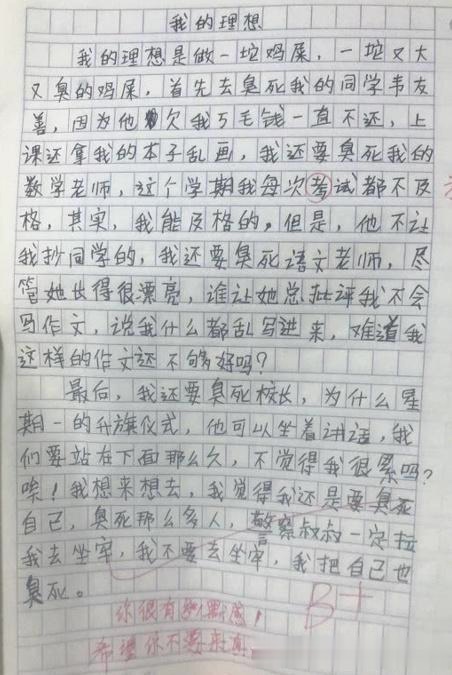 我的理想
我的理想是做一坨鸡屎，一坨又大
又臭的鸡屎，首先去臭死我的同学韦友
善，因为他欠我5毛钱一直不还，上
课还拿我的本子乱画，我还要臭死我的
数学老师，这个学期我每次考试都不及
格，其实，我能及格的，但是，他不让
我抄同学的，我还要臭死语文老师，尽
管她长得很漂亮，谁让她总批评我不会
写作文，说我什么都乱写进来，难道我
这样的作文还不够好吗？
最后，我还要臭死校长，为什么星
期一的升旗仪式，他可以坐着讲话，我
们要站在下面那么久，不觉得我很累吗？
唉！我想来想去，我觉得我还是要臭死
自己，臭死那么多人，警察叔叔一定拉
我去坐牢，我不要去坐牢，我把自己也
臭死。
你很有幽默感！
B+
希望你不要来真